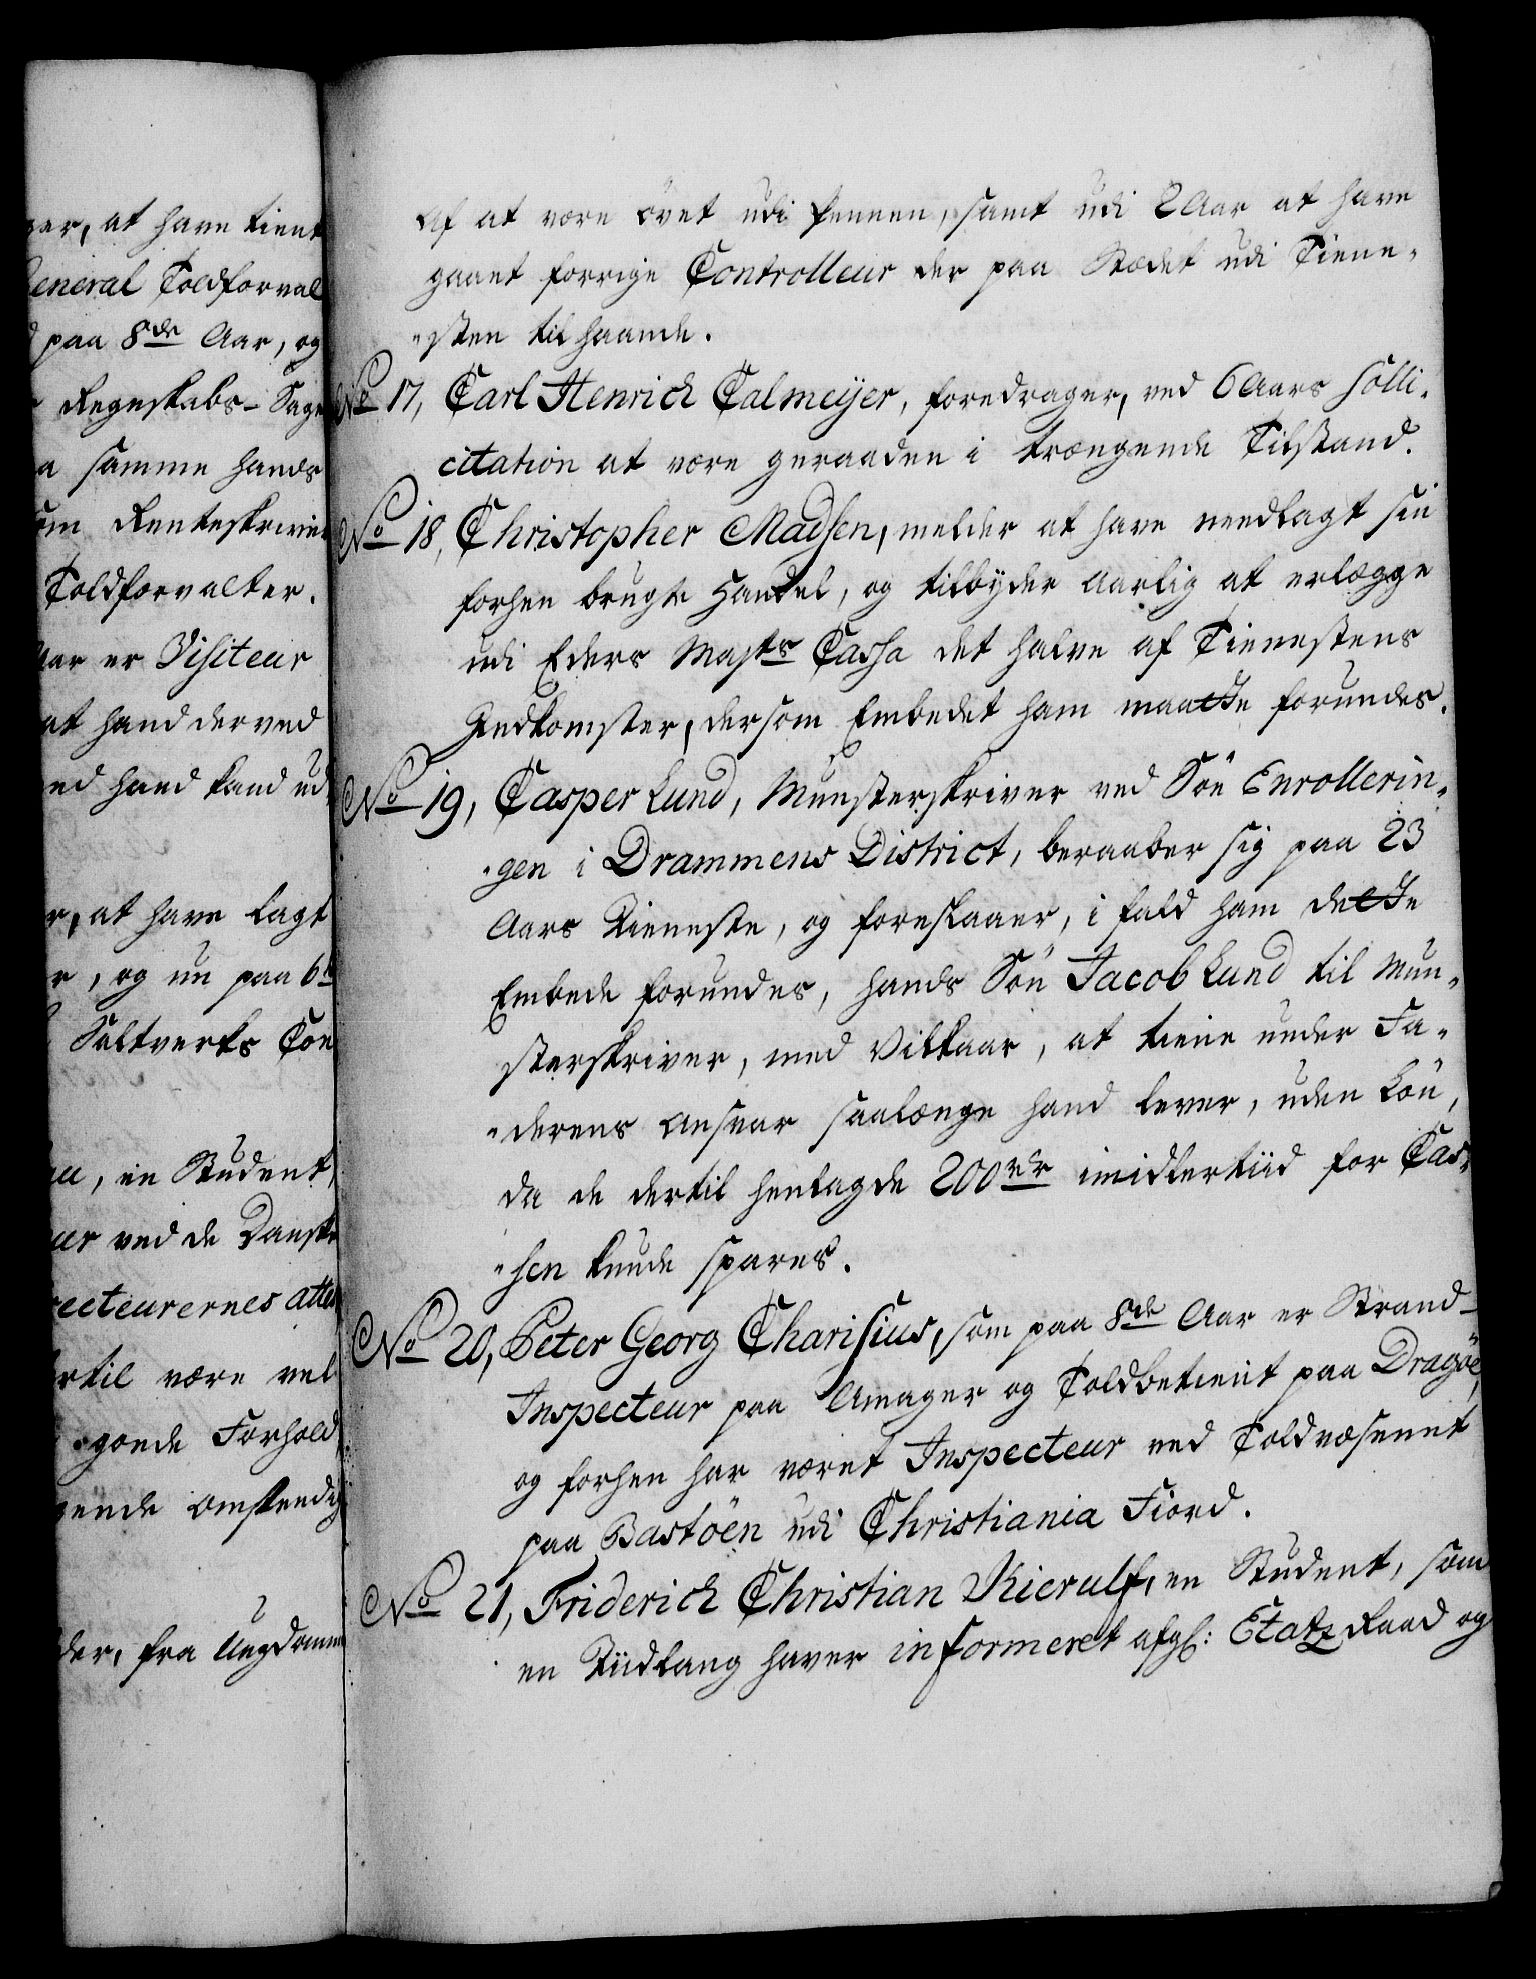 ger, at have tient
General Toldforval
paa 8de Aar, og
Regnskabs-Sage
a samme hands
som Renteskriver
Toldforvalter.
Aar er Visiteur
at hand derved
hand kand ud
r, at have lagt
r, og nu paa 6te
Saltverks Con
en Student,
ur ved de Danske
recteurernes atte
ertil være vel
gende Forhold
omstendig
der, fra Ungdomm
af at være övet udi Pennen, samt udi 2 Aar at have
gaaet forrige Controlleur der paa Stedet udi Tiene-
-sten til haande.
No 17, Carl Henrich Calmeÿer, foredrager, ved 6 Aars Solli-
citation at være geraaden i trængende Tilstand.
No 18, Christopher Madsen, melder at have needlagt sin
forhen brugte Handel, og tilbyder Aarlig at erlægge
udi Eders Majts Cassa det halve af Tienestens
Indkomster, dersom Embedet ham maatte forundes.
No 19, Casper Lund, Munsterskriver ved Söe Enrollerin-
-gen i Drammens District, beraaber sig paa 23
Aars Tieneste, og foreslaaer, i fald ham dette
Embede forundes, hands Sön Jacob Lund til Mun-
sterskriver, med Vilkaar, at tiene under Fa-
-derens Ansvar saalænge hand lever, uden Lön,
da de dertil henlagde 200 rdr imidlertiid for Cas-
-sen kunde spares.
No 20, Peter Georg Charisius, som paa 8de Aar er Strand-
Inspecteur paa Amager og Toldbetient paa Dragöe,
og forhen har været Inspecteur ved Toldvæsenet
paa Bastöen udi Christiania Fiord.
No 21, Friderich Christian Kierulf, en Student, som
en Tiidlang haver informeret afg: Etatz Raad og